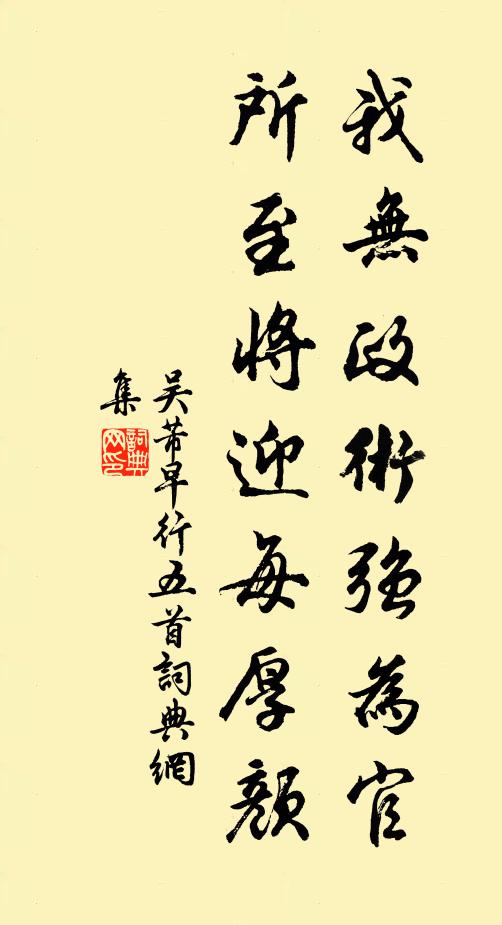 我無政術強為官
所至將迎每厚顏
吴芾早行五首詞典網
集
詞典網印